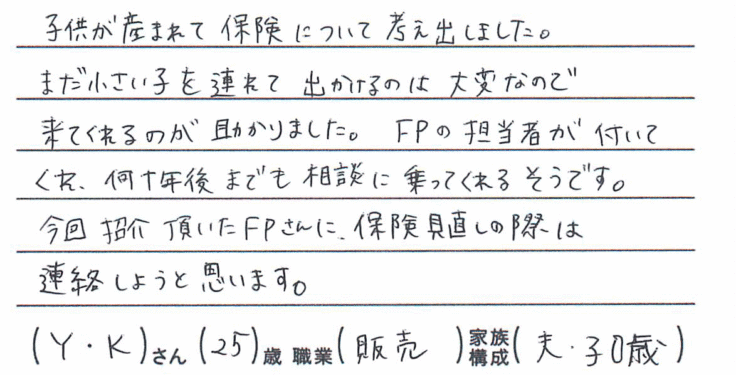 子供が産まれて保険について考え出しました。
まだ小さい子を連れて出かけるのは大変なので
来てくれるのが助かりました。FPの担当者が付いて
くれ、何十年後までも相談に乗ってくれるそうです。
今回紹介頂いたFPさんに、保険見直しの際は
連絡しようと思います。
(Y・K)さん(25)歳 職業(販売)家族構成(夫・子0歳)